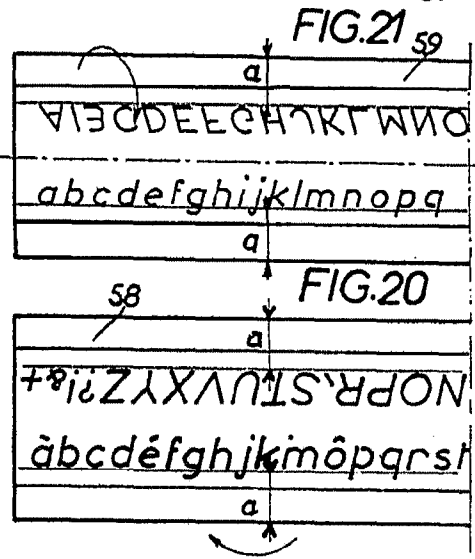 FIG.21 59
a
ABCDEFGHIJKLMNO
abcdefghijklmnopq
a
FIG.20
58
a
+&!?ZYXVUTS,RPON
àbcdéfghjkimôpqrs
a